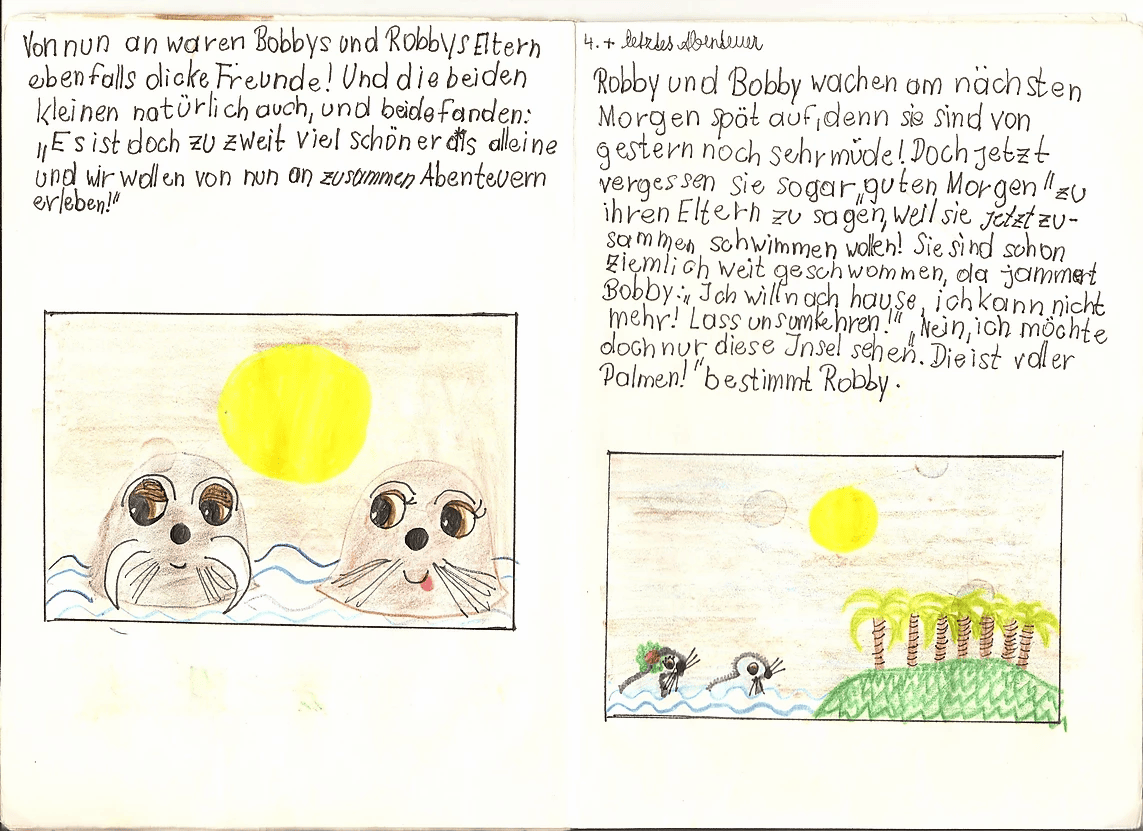 Von nun an waren Bobbys und Robbys Eltern
ebenfalls dicke Freunde! Und die beiden
kleinen natürlich auch, und beide fanden:
„Es ist doch zu zweit viel schöner als alleine
und wir wollen von nun an zusammen Abenteuern
erleben!“
4. + letztes Abenteuer
Robby und Bobby wachen am nächsten
Morgen spöt auf, denn sie sind von
gestern noch sehr müde! Doch jetzt
vergessen sie sogar „guten Morgen“ zu
ihren Eltern zu sagen, weil sie jetzt zu-
sammen schwimmen wollen! Sie sind schon
ziemlich weit geschwommen, da jammert
Bobby: „Ich will nach hause, ich kann nicht
mehr! Lass uns umkehren!“ „Nein, ich möchte
doch nur diese Insel sehen. Die ist voller
Palmen!“ bestimmt Robby.